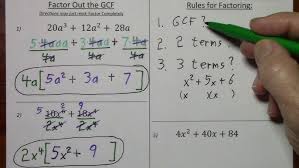 Factor Out the GCF
Directions may just read: Factor Completely
1)
20a³ + 12a² + 28a
5·4aaa + 3·4aa + 7·4a
4a[5a² + 3a + 7]
2)
5·2x⁶
2x⁴[5x² + 9]
Rules for Factoring:
1. GCF?
2. 2 terms?
3. 3 terms?
x² + 5x + 6
(x )(x )
4x² + 40x + 84